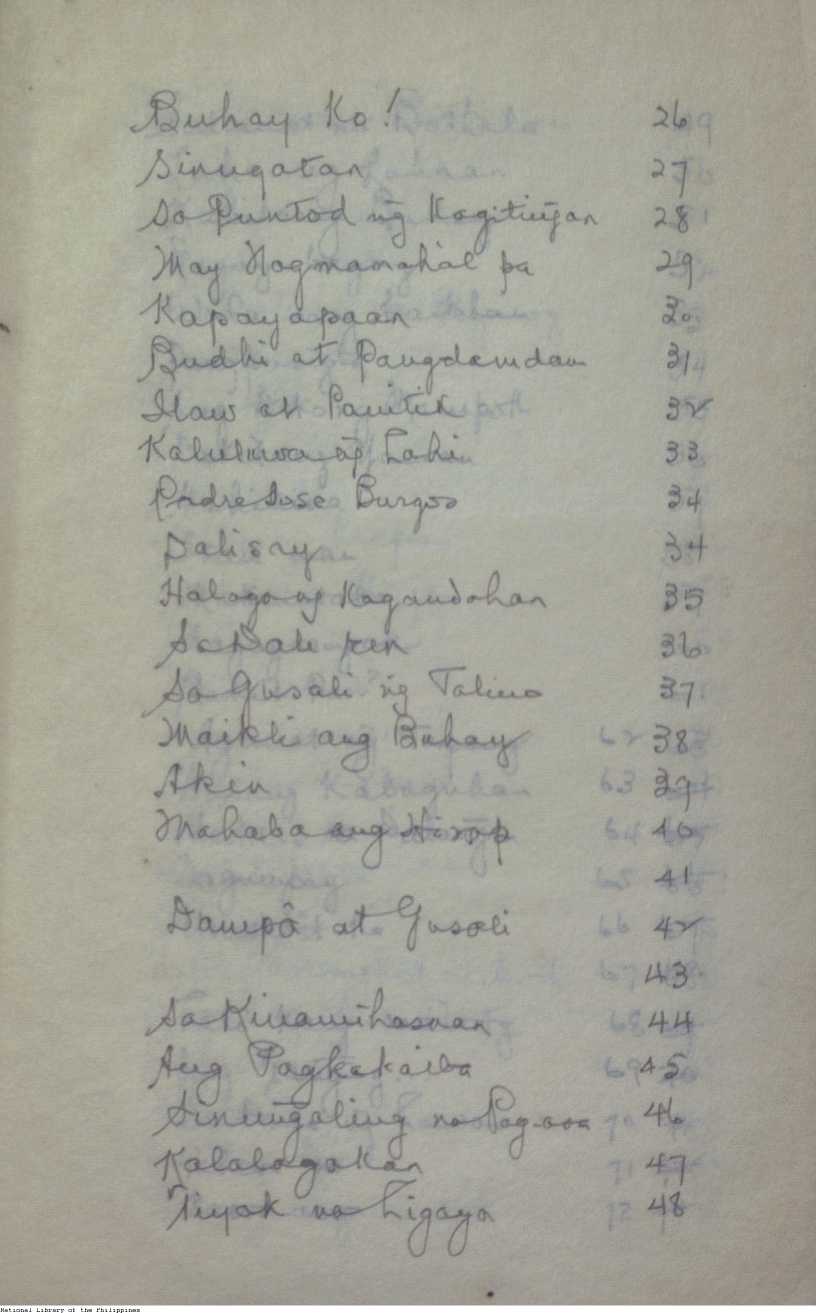 Buhay Ko! 26
Sinugatan 27
Sa Puntod ng̃ Kagiting̃an 28
May Nagmamahal pa 29
Kapayapaan 30
Budhi at Pangdamdam 31
Ilaw at Panitik 32
Kaluluwa ng̃ Lahi 33
Padre Jose Burgos 34
Dalisay 34
Halaga ng Kagandahan 35
Sa Dale rin 36
Sa Gusali ng̃ Talino 37
Maikli ang Buhay 38
Akin 39
Mahaba ang Hirap 40
41
Dampâ at Gusali 42
43
Sa Kinamihasnan 44
Ang Pagkakaiba 45
Sinung̃aling na Pag-asa 46
Kalalagakan 47
Tiyak na Ligaya 48
National Library of the Philippines